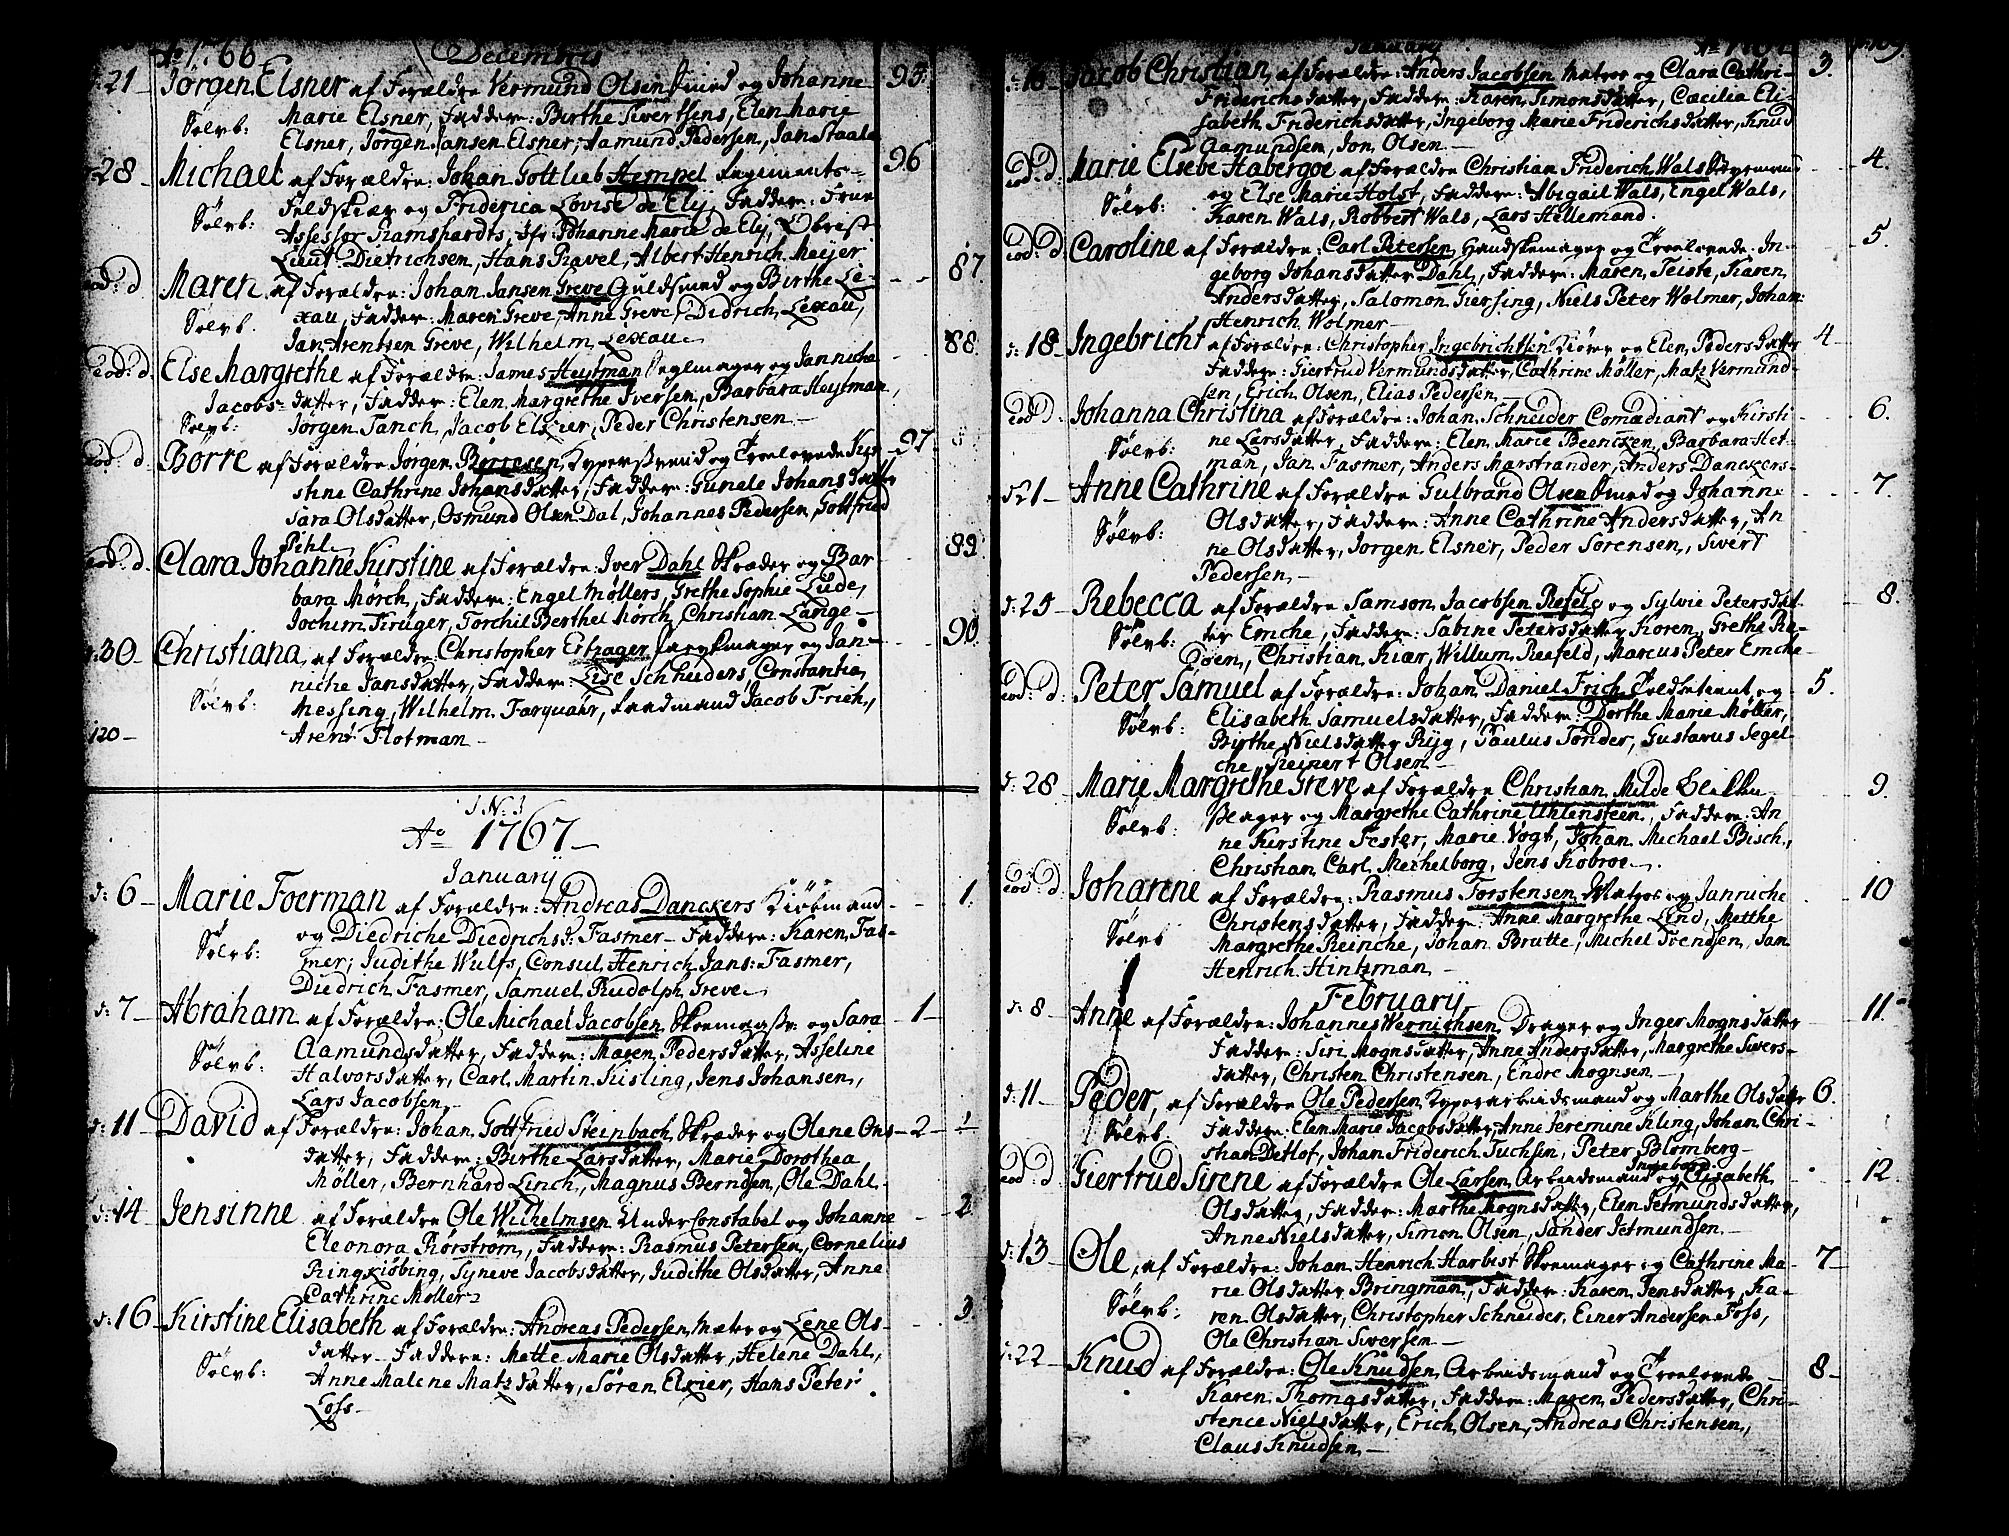 Ao 1766 Decembris
21 Jørgen Elsner af Forældre Vermund Olsen Smed og Johanne 95.
Sølvb: Marie Elsner, Faddere: Birthe Sivertsens, Elen Marie
Elsner, Jørgen Jansen Elsner, Aamund Pedersen, Jan Staale
28 Michael af Forældre: Johan Gottlieb Hempel Regiments- 96
Sølvb: Feldskiær og Friderica Lovise de Elÿ, Faddere: Frue
Assessor Ramshardts, Jfr. Johanne Marie de Elÿ, Obrist
Lieut. Dietrichsen, Hans Ravel, Albert Henrich Meÿer
eod: d. Maren af Forældre: Johan Jansen Greve Guldsmed og Birthe Le- 87
Sølvb. xau, Faddere: Maren Greve, Anne Greve, Didrich Lexau,
Jan Arentsen Greve, Wilhelm Lexau
eod: d. Else Margrethe af Forældre: James Heÿtman Seglmager og Jannicha 88.
Jacobs-datter, Faddere: Elen Margrethe Iversen, Barbara Heÿtman,
Sølvb: Jørgen Tanch, Jacob Elzier, Peder Christensen
eod. d. Börre af Forældre Jørgen Börresen, og Troelovede Kir- 97.
stine Cathrine Johansdatter, Faddere: Gunele Johansdatter
Sara Olsdatter, Osmund Olsen Dal, Johannes Pedersen, Gottfried
Pihl
eod: d. Clara Johanne Kirstine af Forældre: Iver Dahl Skræder og Bar- 89
bara Mørch, Faddere: Engel Møllers, Grethe Sophie Lüde,
Jochim Krüger, Torchil Berthel Mörch, Christian Lange
30 Christiana af Forældre: Christopher Estrager og Jan- 90.
niche Jansdatter, Faddere: Lise Schneiders, Constantia
Sølvb: Messing, Wilhelm Farquahr, Jacob Frich,
120 Arent Flotman
J.N.J.
Ao 1767
Januarÿ
d: 6 Marie Foerman af Forældre: Andreas Danckers Kiöbmand 1.
Sølvb: og Diedriche Diedrichsd: Fasmer Faddere: Karen Fas-
mer, Judithe Wulfs, Consul Henrich Jans: Fasmer,
Diedrich Fasmer, Samuel Rudolph Greve
d: 7 Abraham af Forældre: Ole Michael Jacobsen og Sara 1
Sølvb: Aamundsdatter, Faddere: Maren Pedersdatter, Asseline
Halvorsdatter, Carl Martin Kisling, Jens Johansen,
Lars Jacobsen
d: 11 David af Forældre: Johan Gottfried Steinbach Skræder og Olene Ons- 2
datter, Faddere: Birthe Larsdatter, Marie Dorothea
Møller, Bernhard Linch, Magnus Berndsen, Ole Dahl
d: 14 Jensinne af Forældre Ole Wilhelmsen Under Constabel og Johanne 2.
Eleonora Rørstrom, Faddere: Rasmus Petersen, Cornelius
Ringkiöbing, Syneve Jacobsdatter, Judithe Olsdatter, Anne
Cathrine Møllers
d: 16 Kirstine Elisabeth af Forældre: Andreas Pedersen, Mater og Lene Ols- 3.
datter Faddere: Mette Marie Olsdatter, Helene Dahl,
Sølvb: Anne Malene Matzdatter, Søren Elzier, Hans Peter
Loss
January
d: 16 Jacob Christian af Forældre: Anders Jacobsen Matros og Clara Cathri- 3.
Friderichsdatter, Faddere: Karen Simonsdatter, Cæcilia Eli-
sabeth Friderichsdatter, Ingeborg Marie Friderichsdatter, Knud
Aamundsen, Jon Olsen
eod: d: Marie Elsebe Habergoe af Forældre Christian Friderich Wals 4.
Sølvb: og Else Marie Holst, Faddere: Abigail Wals, Engel Wals,
Karen Wals, Robbert Wals, Lars Hillemand.
eod: d. Caroline af Forældre: Carl Petersen Handskemager og Troelovede In- 5.
geborg Johansdatter Dahl, Faddere: Maren Teiste, Karen
Andersdatter, Salomon Giersing, Niels Peter Wolmer, Johan
Henrich Wolmer
d: 18 Ingebricht af Forældre: Christopher Ingebrichtsen og Elen Pedersdatter 4
Faddere: Giertrud Vermundsdatter, Cathrine Møller, Matz Vermund-
sen, Erich Olsen, Elias Pedersen,
eod: d: Johanna Christina af Forældre: Johan Schneider Comædiant og Kirsti- 6.
Sølvb: ne Larsdatter, Faddere: Elen Marie Beencken, Barbara Het-
man, Jan Fasmer, Anders Marstrander, Anders Danckers-
d: 21 Anne Cathrine af Forældre Gulbrand Olsen Smed og Johanne 7.
Sølvb: Olsdatter, Faddere: Anne Cathrine Andersdatter, An
ne Olsdatter, Jørgen Elsner, Peder Sørensen, Sivert
Pedersen,
d: 25 Rebecca af Forældre Samson Jacobsen Refelo og Sylvie Petersdat- 8.
Sølvb: ter Emche, Faddere: Sabine Petersdatter Koren, Grethe
Christian Kiær, Willum Reefeld, Marcus Peter Emche
eod: d: Peter Samuel af Forældre: Johan Daniel Frich og 5.
Sølvb: Elisabeth Samuelsdatter, Faddere: Dorthe Marie Møller,
Birthe Nielsdatter Rÿg, Paulus Tønder, Gustavus Segel-
che, Reinert Olsen
d: 28 Marie Margrethe Greve af Forældre Christian Milde 9.
Sølvb: og Margrethe Cathrine Uhlensteen, Faddere: An
ne Kirstine Fester, Marie Vogt, Johan Michael Bisch,
Christian Carl Mechelborg, Jens Kobroe
eod: d: Johanne af Forældre: Rasmus Torstensen Matros og Janniche 10
Sølvb Christensdatter, Faddere: Anne Margrethe Lind, Metthe
Margrethe Reinche, Johan Brutte, Michel Svendsen, Jan
Henrich Hintzman
Februarÿ
d: 8 Anne af Forældre: Johannes Wernichsen Drager og Inger Mognsdatter 11
Faddere: Siri Mognsdatter, Anne Andersdatter, Margrethe Sivers-
datter, Christen Christensen, Endre Mognsen
d: 11 Peder, af Forældre Ole Pedersen og Marthe Olsdatter 6.
Sølvb Faddere: Elen Marie Jacobsdatter, Anne Jeremine Kling, Johan Chri-
stian Detlof, Johan Friderich Tuchsen, Peter Blomberg
Ingeborg
eod: d Giertrud Sirene af Forældre Ole Larsen Arbeidsmand og Elisabeth 12
Olsdatter, Faddere: Marthe Mognsdatter, Elen Jetmundsdatter,
Anne Nielsdatter, Simon Olsen, Sander Jetmundsen
d: 13 Ole, af Forældre: Johan Henrich Harbest Skoemager og Cathrine Ma- 7
Sølvb: rie Olsdatter Bringman, Faddere: Karen Jensdatter, Ka-
ren Olsdatter, Christopher Schneider, Einer Andersen Foss,
Ole Christian Siversen
d: 22 Knud af Forældre: Ole Knudsen Arbeidsmand og Troelovede 8
Karen Thomasdatter, Faddere: Maren Pedersdatter, Chri-
stence Nielsdatter, Erich Olsen, Andreas Christensen,
Claus Knudsen